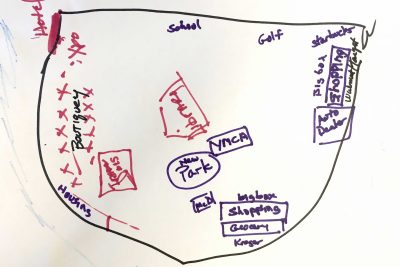 Hotel
School
Golf
Starbucks
Big box
Shopping
Walmart/Target
Auto
Dealer
Boutiquey
Library
YMCA
New
Park
Housing
McD
big box
Shopping
Grocery
Kroger